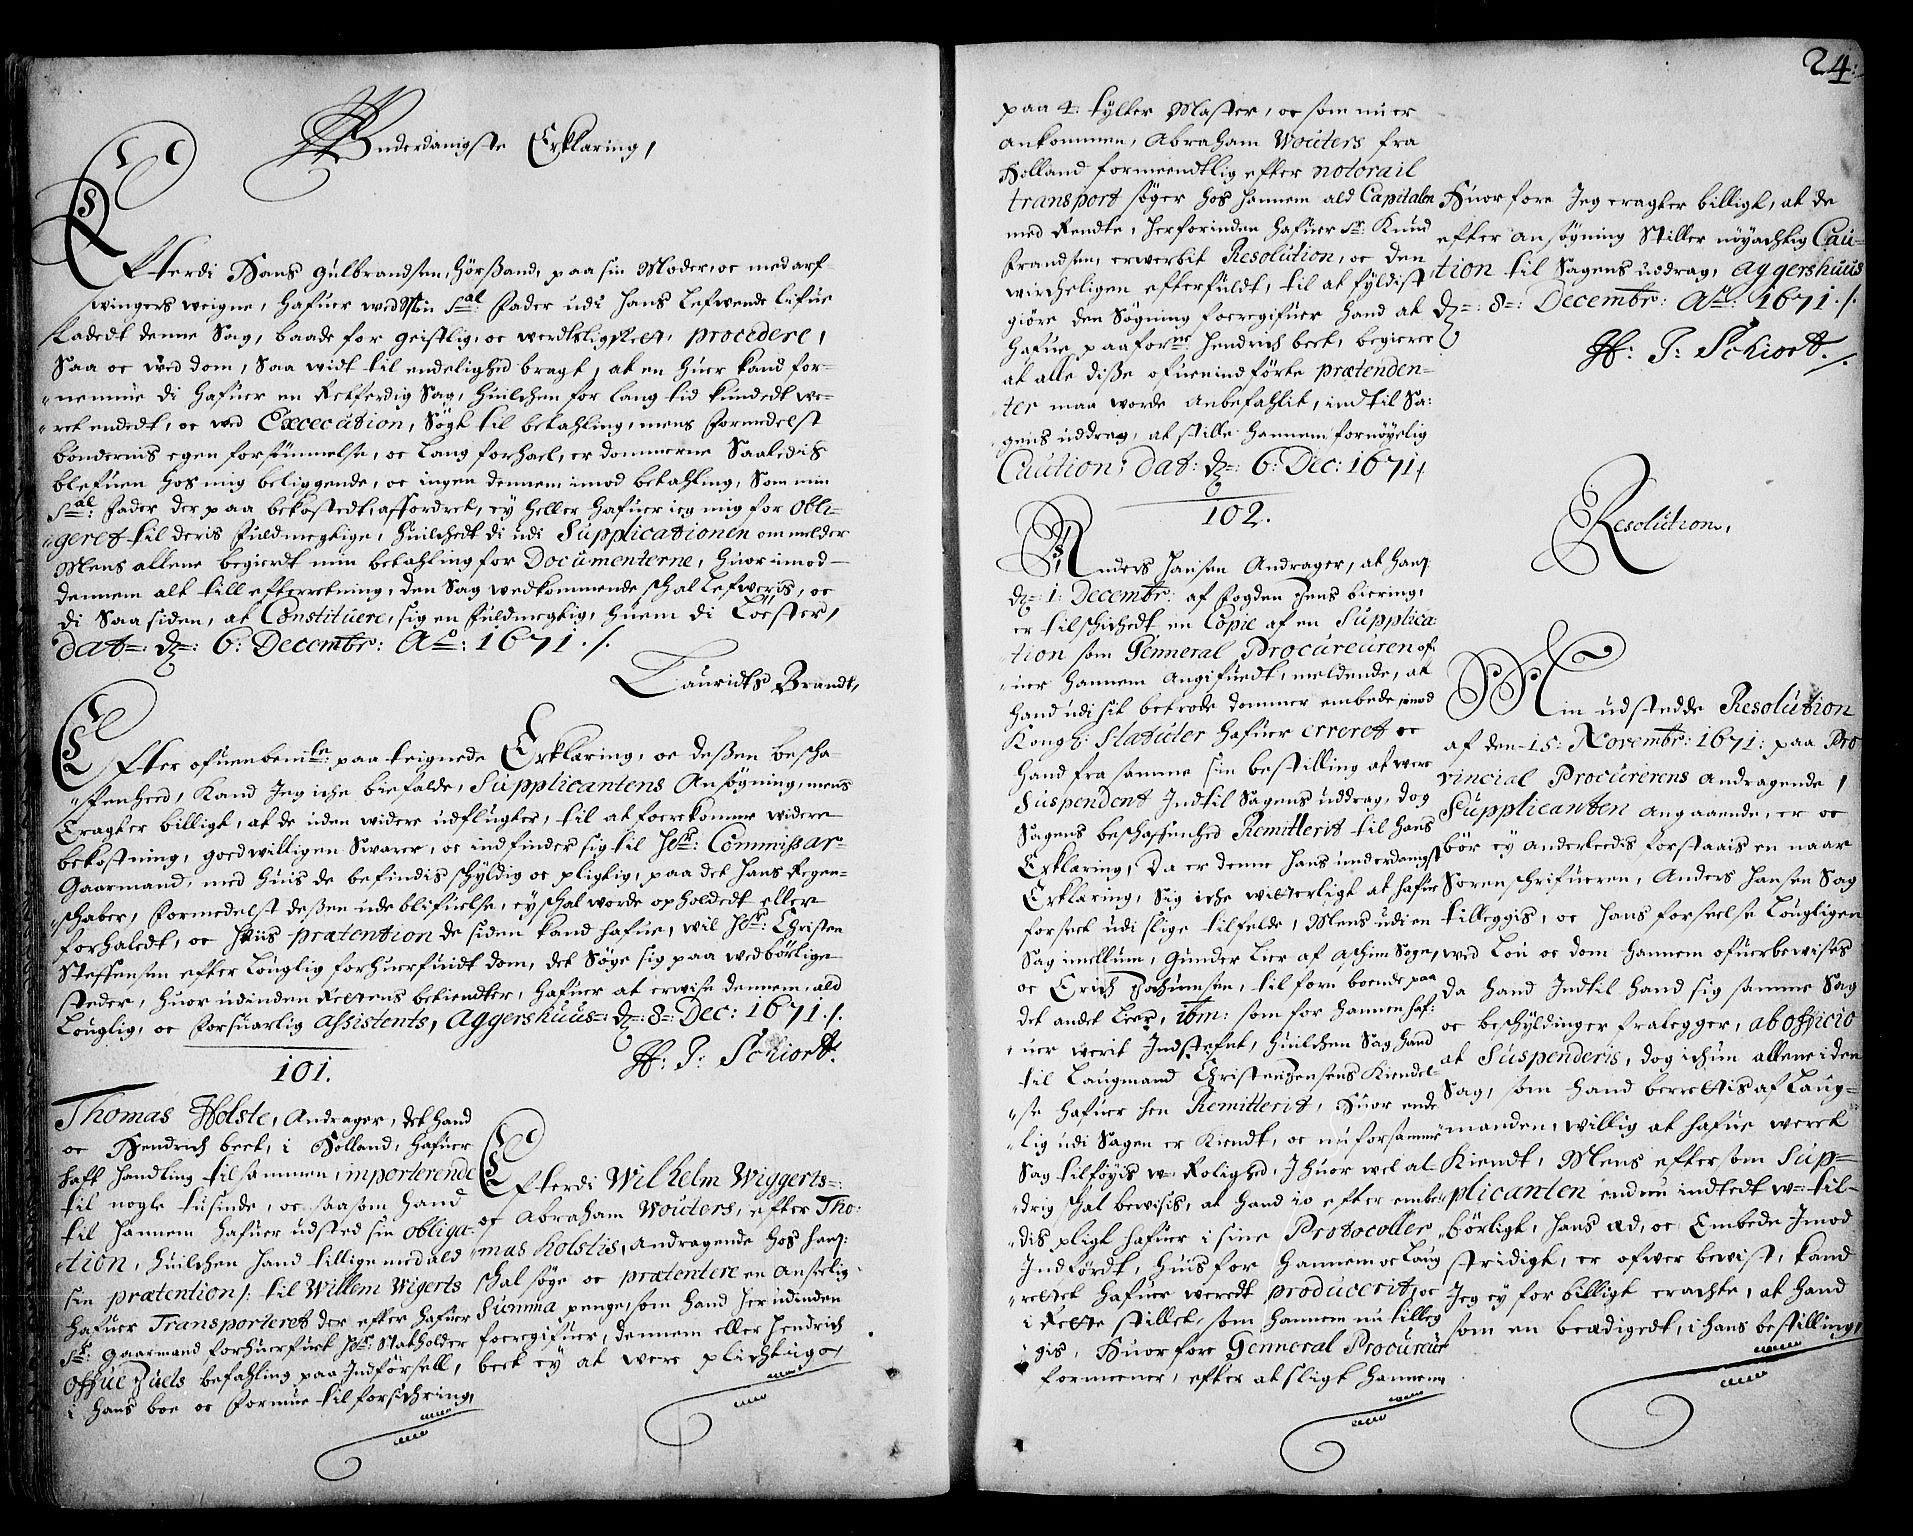 Vnderdanigste Erklæring,
Efterdi Hans Gulbrandsen, Hörsand, paa sin Moder, oc medarf-
wingers weigne, hafuer wed Min Sal Fader udi hans Lefwende lifue
ladedt denne Sag, baade for geistlig, oc werdtsligReet, procedere,
Saa oc wed dom, Saa widt til endelighed bragt, at en huer kand for-
nemme di hafuer en Retferdig Sag, huilchen for lang tid kundedt we-
ret endedt, oc wed Excecution, Sögt til betahling, mens formedelst
böndernis egen forsümmelse, oc lang forhael, er dommerne Saaledis
blefuen hos mig beliggende, oc ingen dennem imod betahling, Som min
Sal: Fader der paa bekostedt, affordret, ey heller hafuer ieg mig for Obli-
geret til deris fuldmegtige, huilchedt di udi Supplicationen ommelder
Mens allene begierdt min betahling for Documenterne, huor imod
dennem alt till efterretning, den Sag wedkommende schal Lefweris, oc
di Saa siden, at Constituere, sig en fuldmegtig, huem di Loester,
dat: dn: 6: Decembr: Ao: 1671 ./.
Lauridts Brandt,
Efter ofuenbemte: paa teignede Erklæring, oc deßen bescha-
ffenheed, Kand Jeg iche biefalde, Supplicantens Ansögning, mens
Eragter billigt, at de uden widere udflugter, til at foerekomme widere
bekostning, goedwilligen Swarer, oc indfinder sig til Hr: Commißar
Gaarmand, med huis de befindis schyldig oc pligtig, paa det hans Regen-
schaber, formedelst deßen udeblifuelse, ey schal worde opholdedt eller
forhaledt, oc huis prætention de siden kand hafue, wil Hr: Christen
Steffensen efter Louglig forhuerfuidt dom, det Söge sig paa wedbörlige
steder, huor udinden Rettens betiendter, hafuer at erwise dennem, ald
Louglig, oc forsuarlig assistents, Aggershuus: dn: 8: Dec: 1671 ./.
H: J: Schiort.
101.
Thomas Holste, Andrager, det hand
oc Hendrich beck, i Holland, hafuer
hafft handling tilsammen, inporterende
til nogle tusinde, oc saasom hand
til hannem hafuer udsted sin obliga-
tion, huilchen hand tillige med ald
sin prætention /: til Willem Wigerts
hafuer Transporteret der efter hafuer
Hr: Gaarmand forhuerfuet Hr: Statholder
Offue Juels befahling paa Indförsell,
i hans boe oc formue til forsichring,
Efterdi Wilhelm Wiggerts:
oc Abraham Wouters, efter Tho:
mas Holstis, andragende hos ham:
schal söge oc prætentere en Anseelig
Summa penge, som hand her udinden
foeregifuer, dennem eller hendrich
beck ey at were plichtuge,
24:
paa 4: tylter Master, oc som nu er
ankommen, Abraham Wouters fra
Holland formeendtlig efter notorail
transport söger hos hannem ald Capitalen
med Rendte, herforinden hafuer Sr: Knud
Frandsen, erwerbit Resolution, oc den
wircheligen efterfuldt, til at fyldist
giöre den Sögning foeregifuer hand at
hafue paa forne: hendrich beck, begierer
at alle diße ofuenindförte prætenden-
ter maa worde anbefahlit, indtil Sa:
gens uddrag, at stille hannem fornöyelig
Caution, dat: dn: 6: Dec: 1671,
Huor fore Jeg eragter billigt, at de
efter ansögning stiller nöyachtig Cau-
tion til Sagens uddrag, Aggershuus
dn: 8: Decembr: Ao: 1671 ./.
H: J: Schiort. ./.
102.
Anders Hansen Andrager, at ham
dn: 1: Decembr: af fogden Jens biering,
er tilschichedt en Copie af en Supplica
tion som Genneral Procureuren of-
uer hannem angifuedt, meldende, at
hand udi sit betrode dommer embede, imod
Kongl: Statuter hafuer erreret oc
hand fra samme sin bestilling at were
Suspendent Indtil Sagens uddrag, dog
Sagens beschaffenhed Remitterit til hans
Erklæring, Da er denne hans underdanigst
Erklæring, Sig iche witterligt at hafue
forseet udi slige tilfelde, Mens udi en
Sag imellum, Gunder Lier af Sogn,
oc Erich Jochumsen, til forn boende paa
det andet Lier, ibm: som for hannem haf:
uer werit Indstefnt, huilchen Sag hand
til Laugmand Christen Jensens Kiendel-
se hafuer hen Remitterit, Huor ende
lig udi Sagen er Kiendt, oc nu forsamme
Sag tilföyis w: Rolighed, Ihuor wel al-
drig schal bewisis, at hand io efter embe-
dis pligt hafuer i sine Protocoller
Indfördt, huis for hannem oc Laug
rettet hafuer weredt producerit, oc
i Rette stillet, som hannem nu tilleg
gis, Huor fore Genneral Procureur
formeener, efter at sligt hannem
Resolution,
Min udstedde Resolution
af den 15: Novembr: 1671: paa Pro
vincial Procurerens andragende,
Supplicanten angaaende, er oc
bör ey anderleedis forstaais en naar
Sorenschrifueren, Anders Hansen Sag
tilleggis, oc hans forseelse Lougligen
wed Lou oc dom hannem ofuerbewises
da hand Indtil hand sig samme Sag
oc beschyldinger fralegger, ab officio
at Suspenderis, dog ichun allene i den
Sag, som hand berettis af Laug-
manden, willig at hafue weret
Kiendt, Mens eftersom Sup-
plicanten endnu indtedt w: til-
börligt, hans æd, oc Embede Imod
stridigt, er ofwer bewist, kand
Jeg ey for billigt erachte, at hand
som en beædigedt, i hans bestilling,